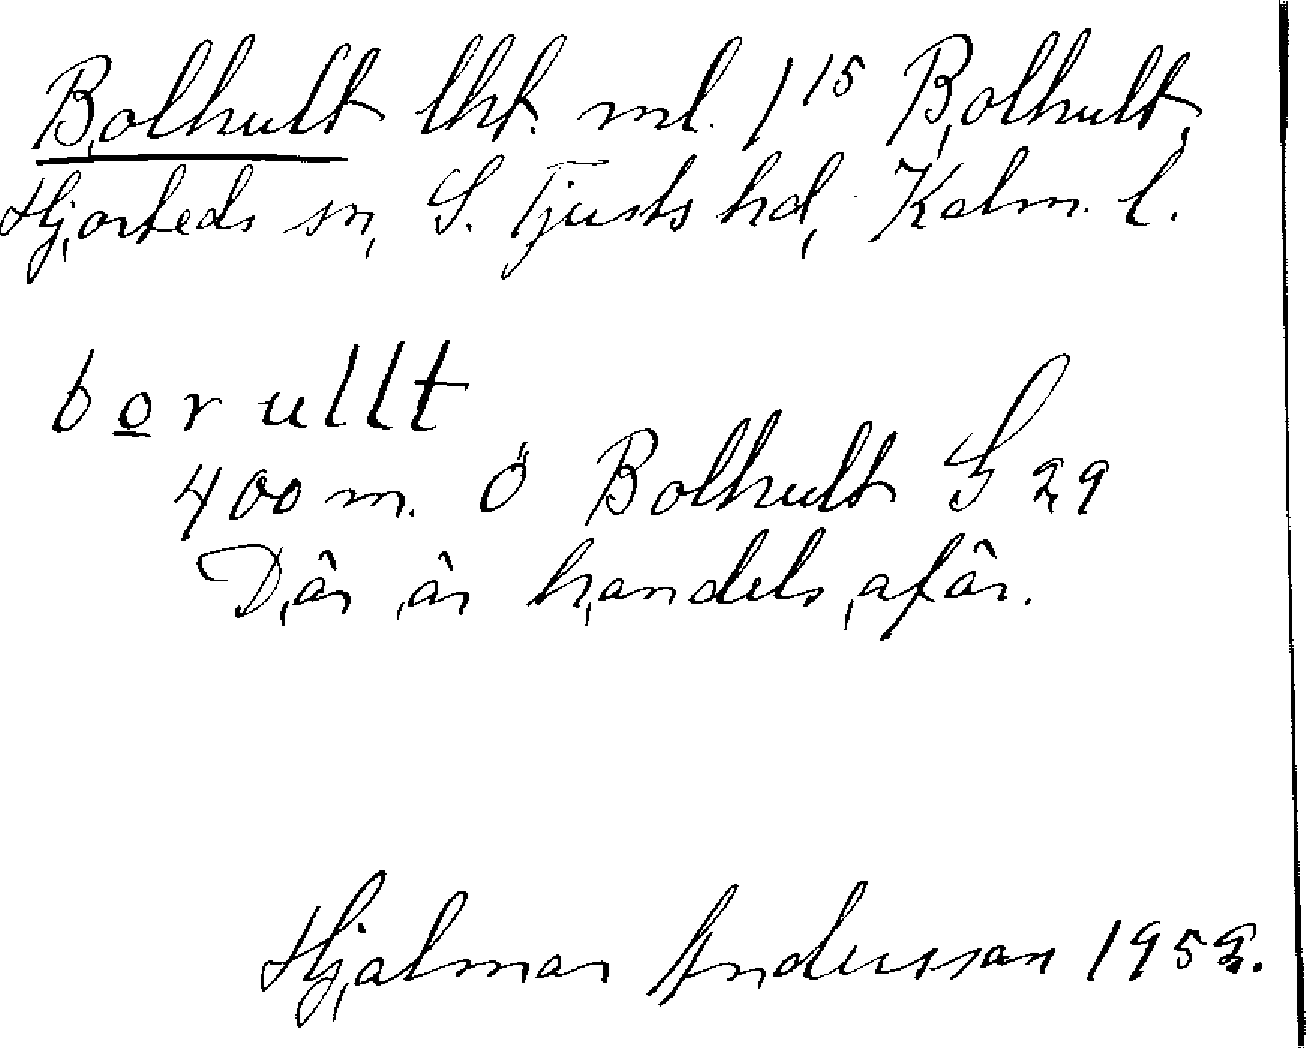 Bolhult lht. ml. 1 15 Bolhult,
Hjorteds sn, S. Tjusts hd, Kalm. l.
bo̲rullt
400 m. Ö Bolhult S 29
Där är handelsafär.
Hjalmar Andersson 1952.